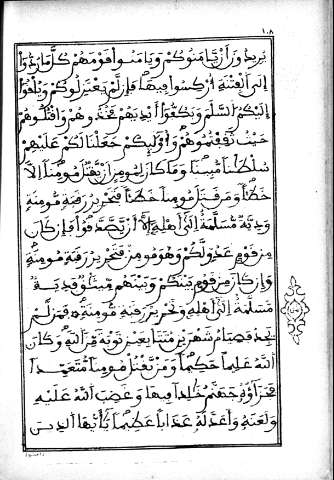 ١٠٨
يريدون أن يأمنوكم ويأمنوا قومهم كل ما ردوا
إلى الفتنة أركسوا فيها فإن لم يعتزلوكم ويلقوا
إليكم السلم ويكفوا أيديهم فخذوهم واقتلوهم
حيث ثقفتموهم وأولئكم جعلنا لكم عليهم
سلطنا مبينا وما كان لمومن أن يقتل مومنا إلا
خطئا ومن قتل مومنا خطئا فتحرير رقبة مومنة
ودية مسلمة إلى أهله إلا أن يصدقوا فإن كان
من قوم عدو لكم وهو مومن فتحرير رقبة مومنة
وإن كان من قوم بينكم وبينهم ميثق فدية
مسلمة إلى أهله وتحرير رقبة مومنة فمن لم
يجد فصيام شهرين متتابعين توبة من الله وكان
الله عليما حكيما ومن يقتل مومنا متعمدا
فجزاؤه جهنم خلدا فيها وغضب الله عليه
ولعنه وأعد له عذابا عظيما يأيها الذين